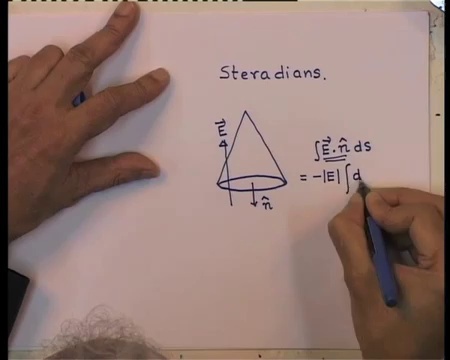 Steradians.
E⃗
∫E⃗.n̂ ds
= -|E| ∫d
n̂